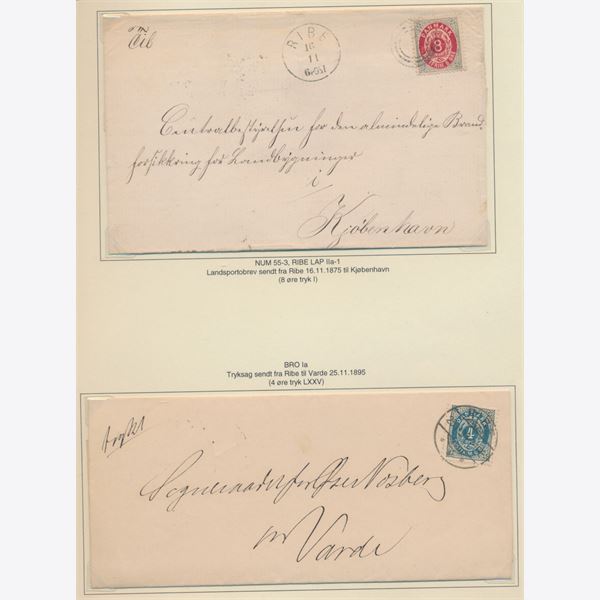 Til
RIBE
16
11
DANMARK
8
Centralbestyrelsen for den almindelige Brand-
forsikkring for Landbygninger
i
Kjøbenhavn
NUM 55-3, RIBE LAP IIa-1
Landsportobrev sendt fra Ribe 16.11.1875 til Kjøbenhavn
(8 øre tryk I)
BRO Ia
Tryksag sendt fra Ribe til Varde 25.11.1895
(4 øre tryk LXXV)
trykt
4
Sogneraadet for Øse Nosberg
pr
Varde